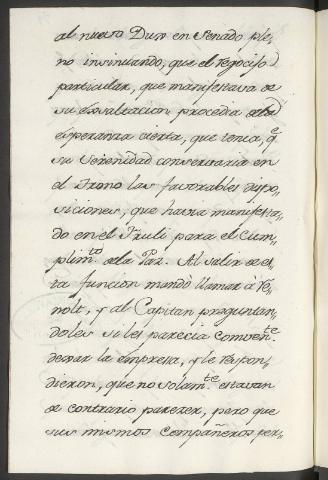 al nuevo Dux en Senado ple„
no insinuando, que el regocijo
particular, que manifestava de
su exsaltacion procedia de la
esperanza cierta, que tenia, q.e
su Serenidad conservaria en
el Trono las favorables dispo„
siciones, que havia manifesta„
do en el Friuli para el Cum„
plim.to de la Paz. Al salir de es„
ta funcion mandò llamar à Re„
nolt, y al Capitan preguntan„
doles si les parecia conven.te
dexar la empresa, y le respon„
dieron, que no solam.te estavan
de contrario parezer, pero que
sus mismos Compañeros per„